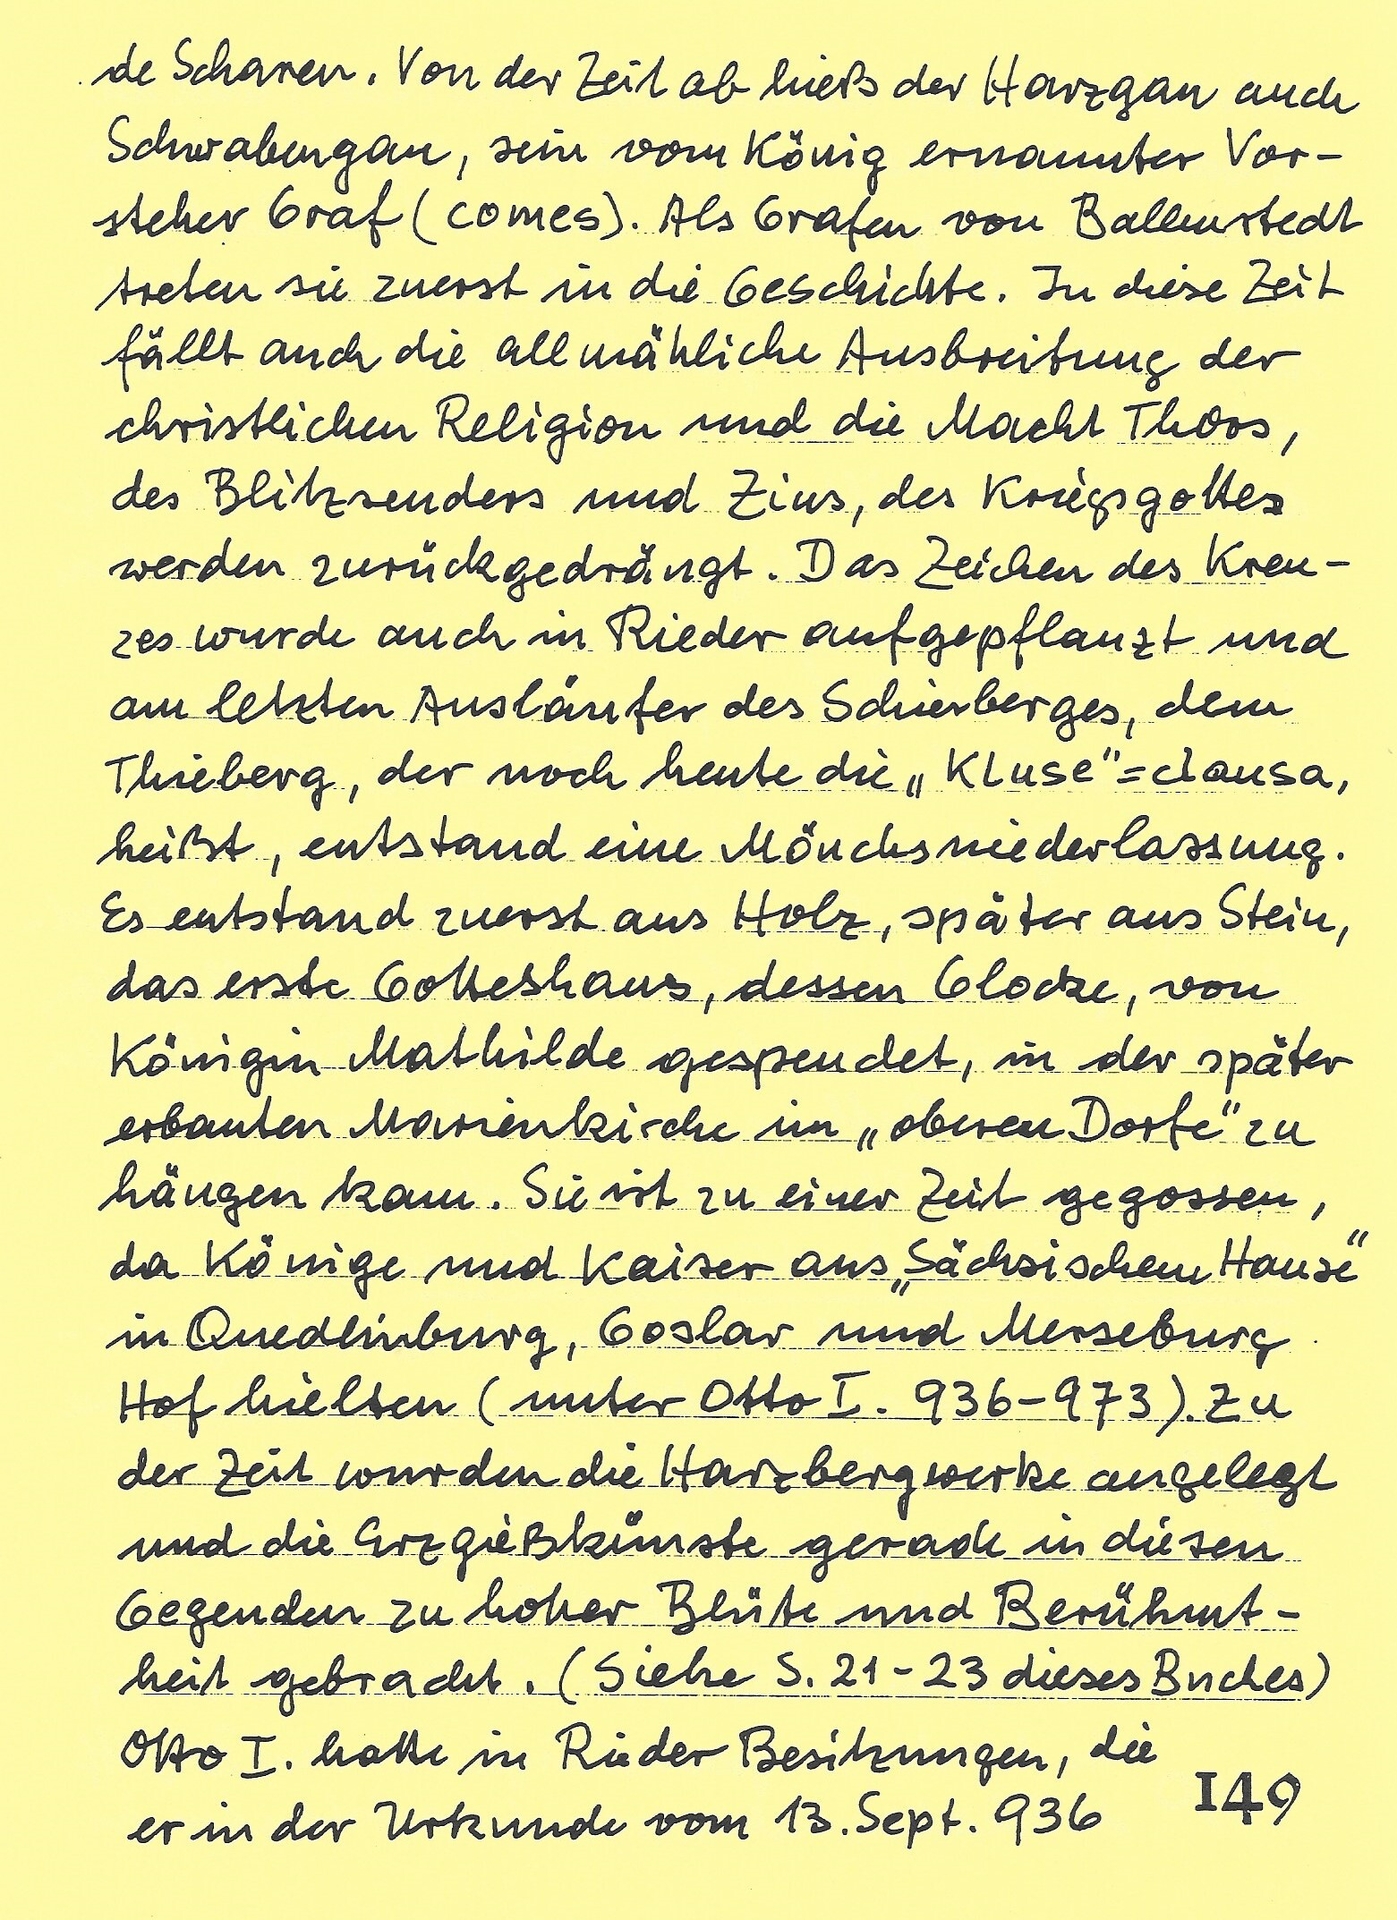 de Scharen. Von der Zeit ab hieß der Harzgau auch
Schwabengau, sein vom König ernannter Vor-
steher Graf (comes). Als Grafen von Ballenstedt
treten sie zuerst in die Geschichte. In diese Zeit
fällt auch die allmähliche Ausbreitung der
christlichen Religion und die Macht Thors,
des Blitzsenders und Zius, des Kriegsgottes
werden zurückgedrängt. Das Zeichen des Kreu-
zes wurde auch in Rieder aufgepflanzt und
am letzten Ausläufer des Schierberges, dem
Thieberg, der noch heute die „Kluse"=clausa,
heißt, entstand eine Mönchsniederlassung.
Es entstand zuerst aus Holz, später aus Stein,
das erste Gotteshaus, dessen Glocke, von
Königin Mathilde gespendet, in der später
erbauten Marienkirche im „oberen Dorfe" zu
hängen kam. Sie ist zu einer Zeit gegossen,
da Könige und Kaiser aus „Sächsischem Hause"
in Quedlinburg, Goslar und Merseburg
Hof hielten (unter Otto I. 936-973). Zu
der Zeit wurden die Harzbergwerke angelegt
und die Erzgießkünste gerade in diesen
Gegenden zu hoher Blüte und Berühmt-
heit gebracht. (Siehe S. 21-23 dieses Buches)
Otto I. hatte in Rieder Besitzungen, die
er in der Urkunde vom 13. Sept. 936
149